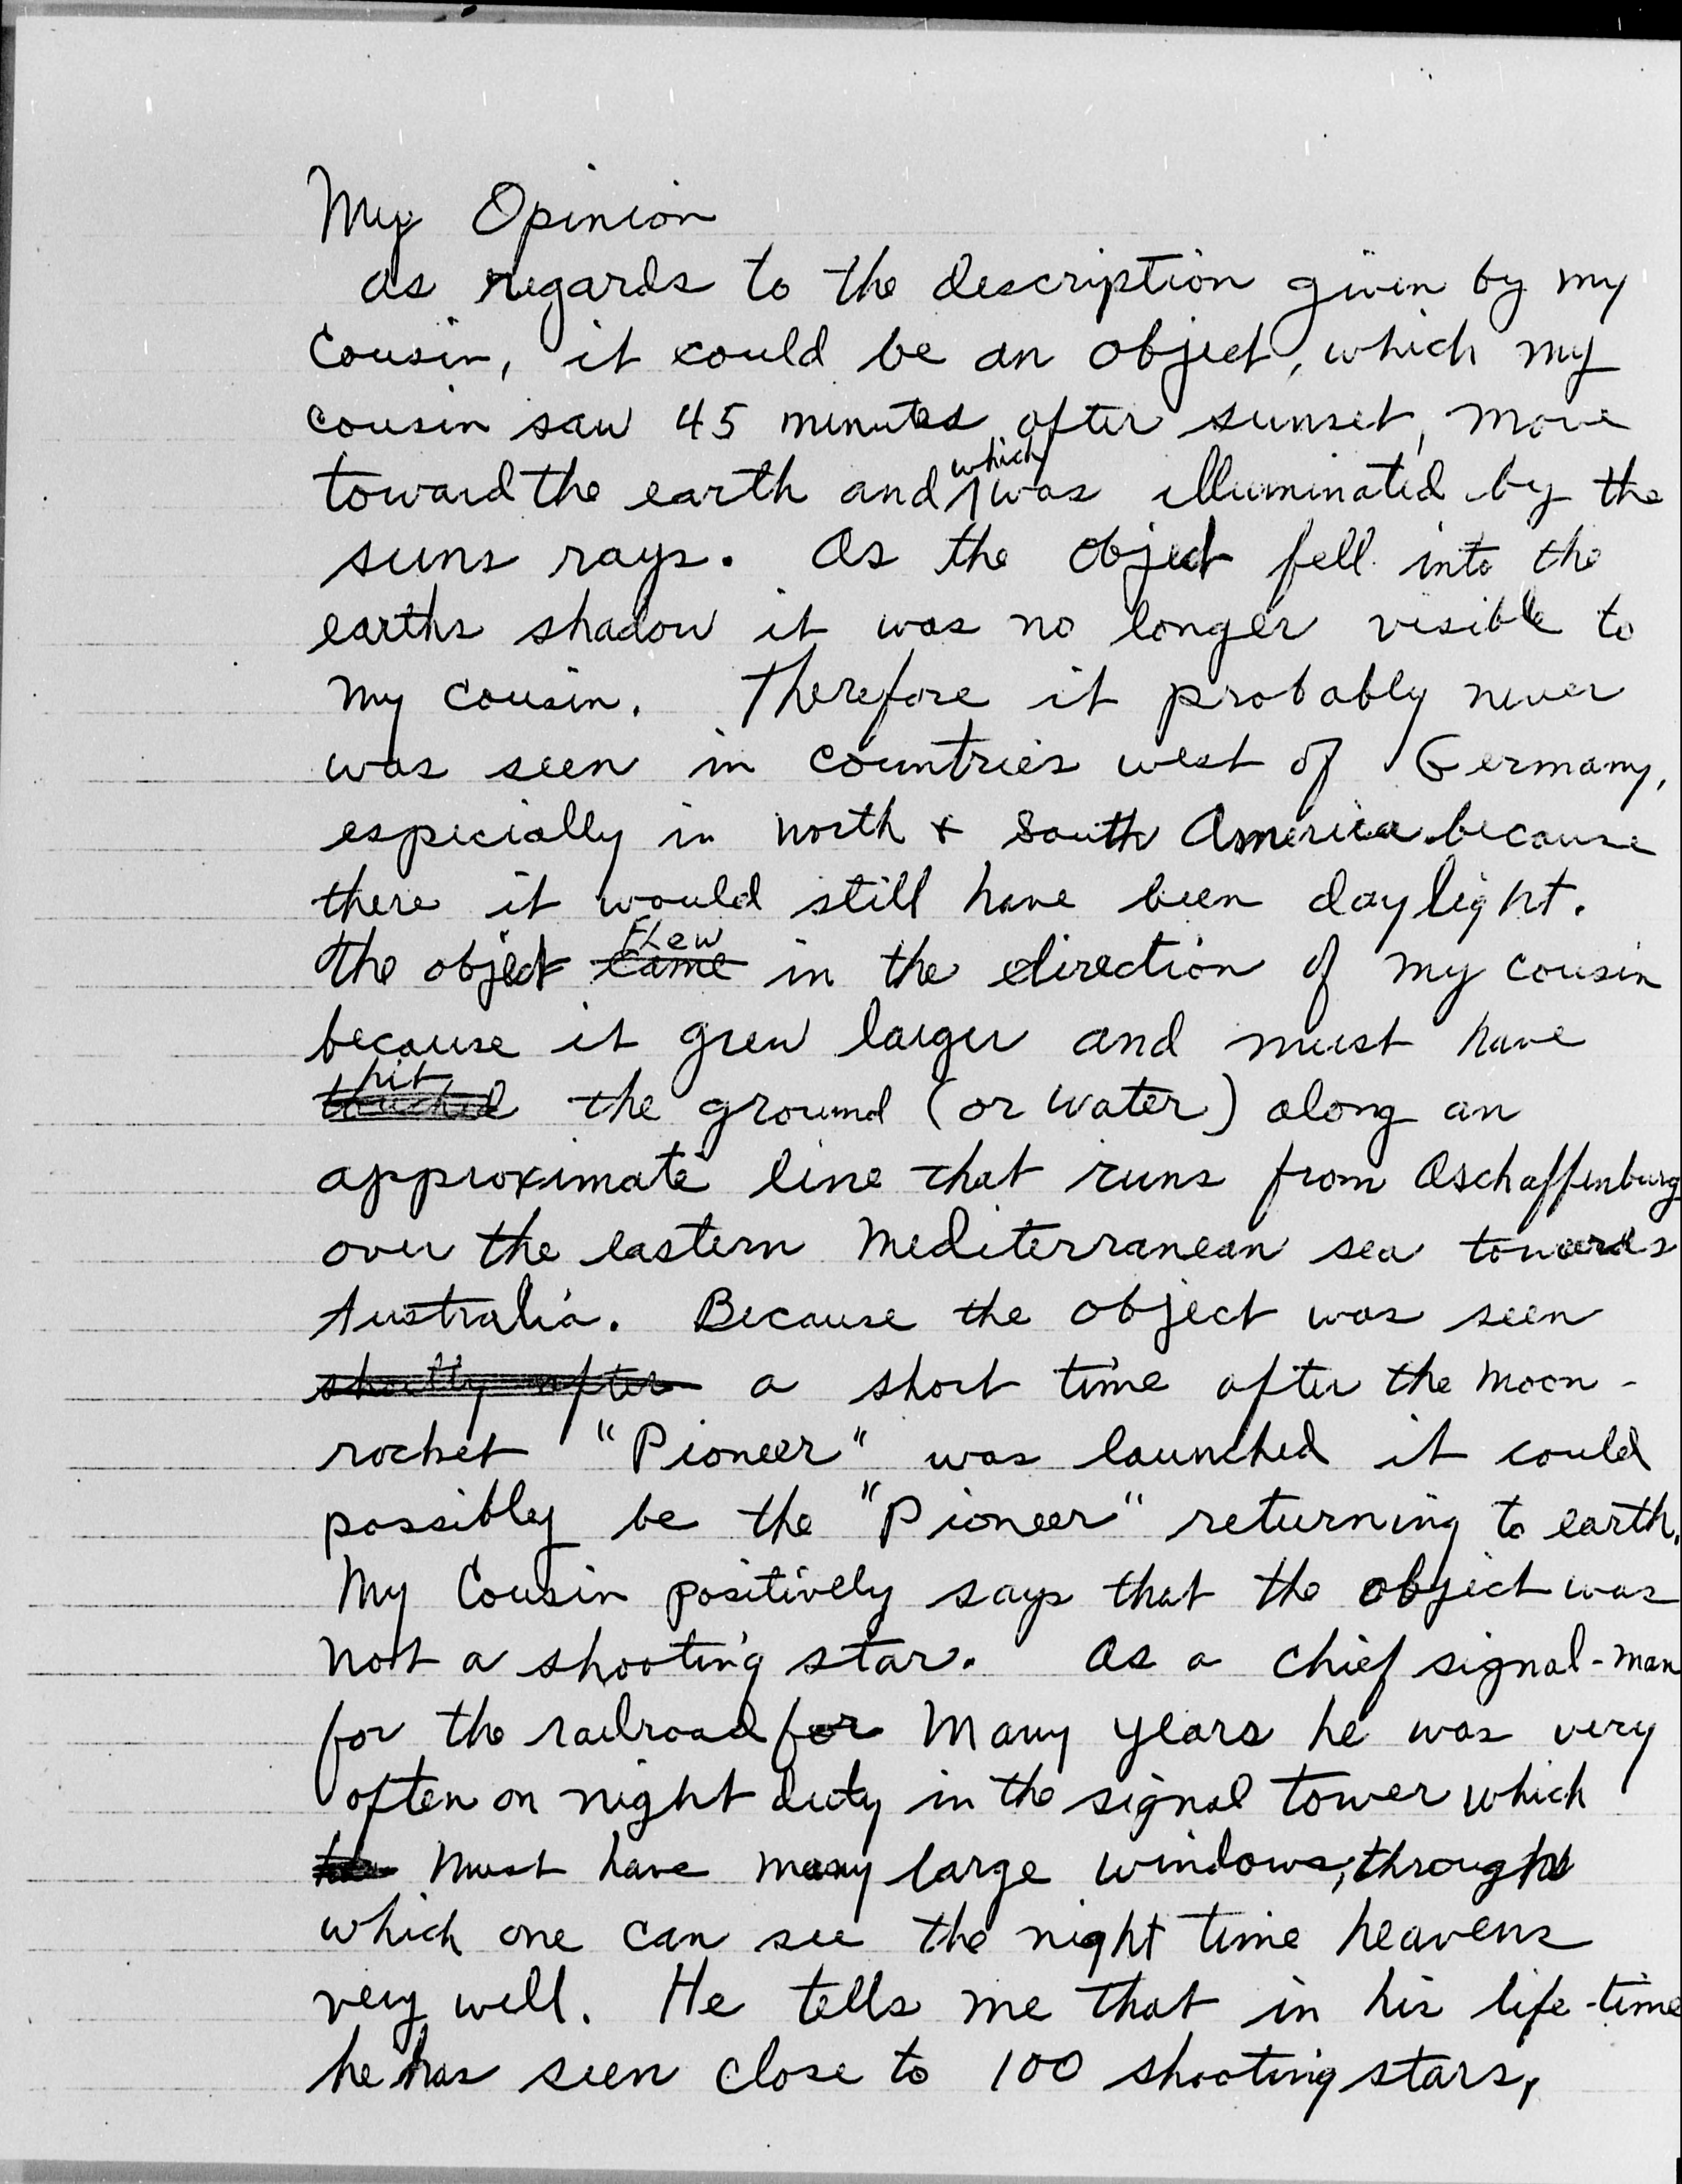 My Opinion
as regards to the description given by my
Cousin, it could be an object, which my
cousin saw 45 minutes after sunset, move
toward the earth and which was illuminated by the
suns rays. As the object fell into the
earths shadow it was no longer visible to
my cousin. Therefore it probably never
was seen in countries west of Germany,
especially in north & south America because
there it would still have been daylight.
The object came flew in the direction of my cousin
because it grew larger and must have
touched hit the ground (or water) along an
approximate line that runs from Aschaffenburg
over the eastern Mediterranean sea towards
Australia. Because the object was seen
shortly after a short time after the moon-
rocket "Pioneer" was launched it could
possibly be the "Pioneer" returning to earth.
My Cousin positively says that the object was
not a shooting star. As a chief signal-man
for the railroad for many years he was very
often on night duty in the signal tower which
must have many large windows, through
which one can see the night time heavens
very well. He tells me that in his life-time
he has seen close to 100 shooting stars,